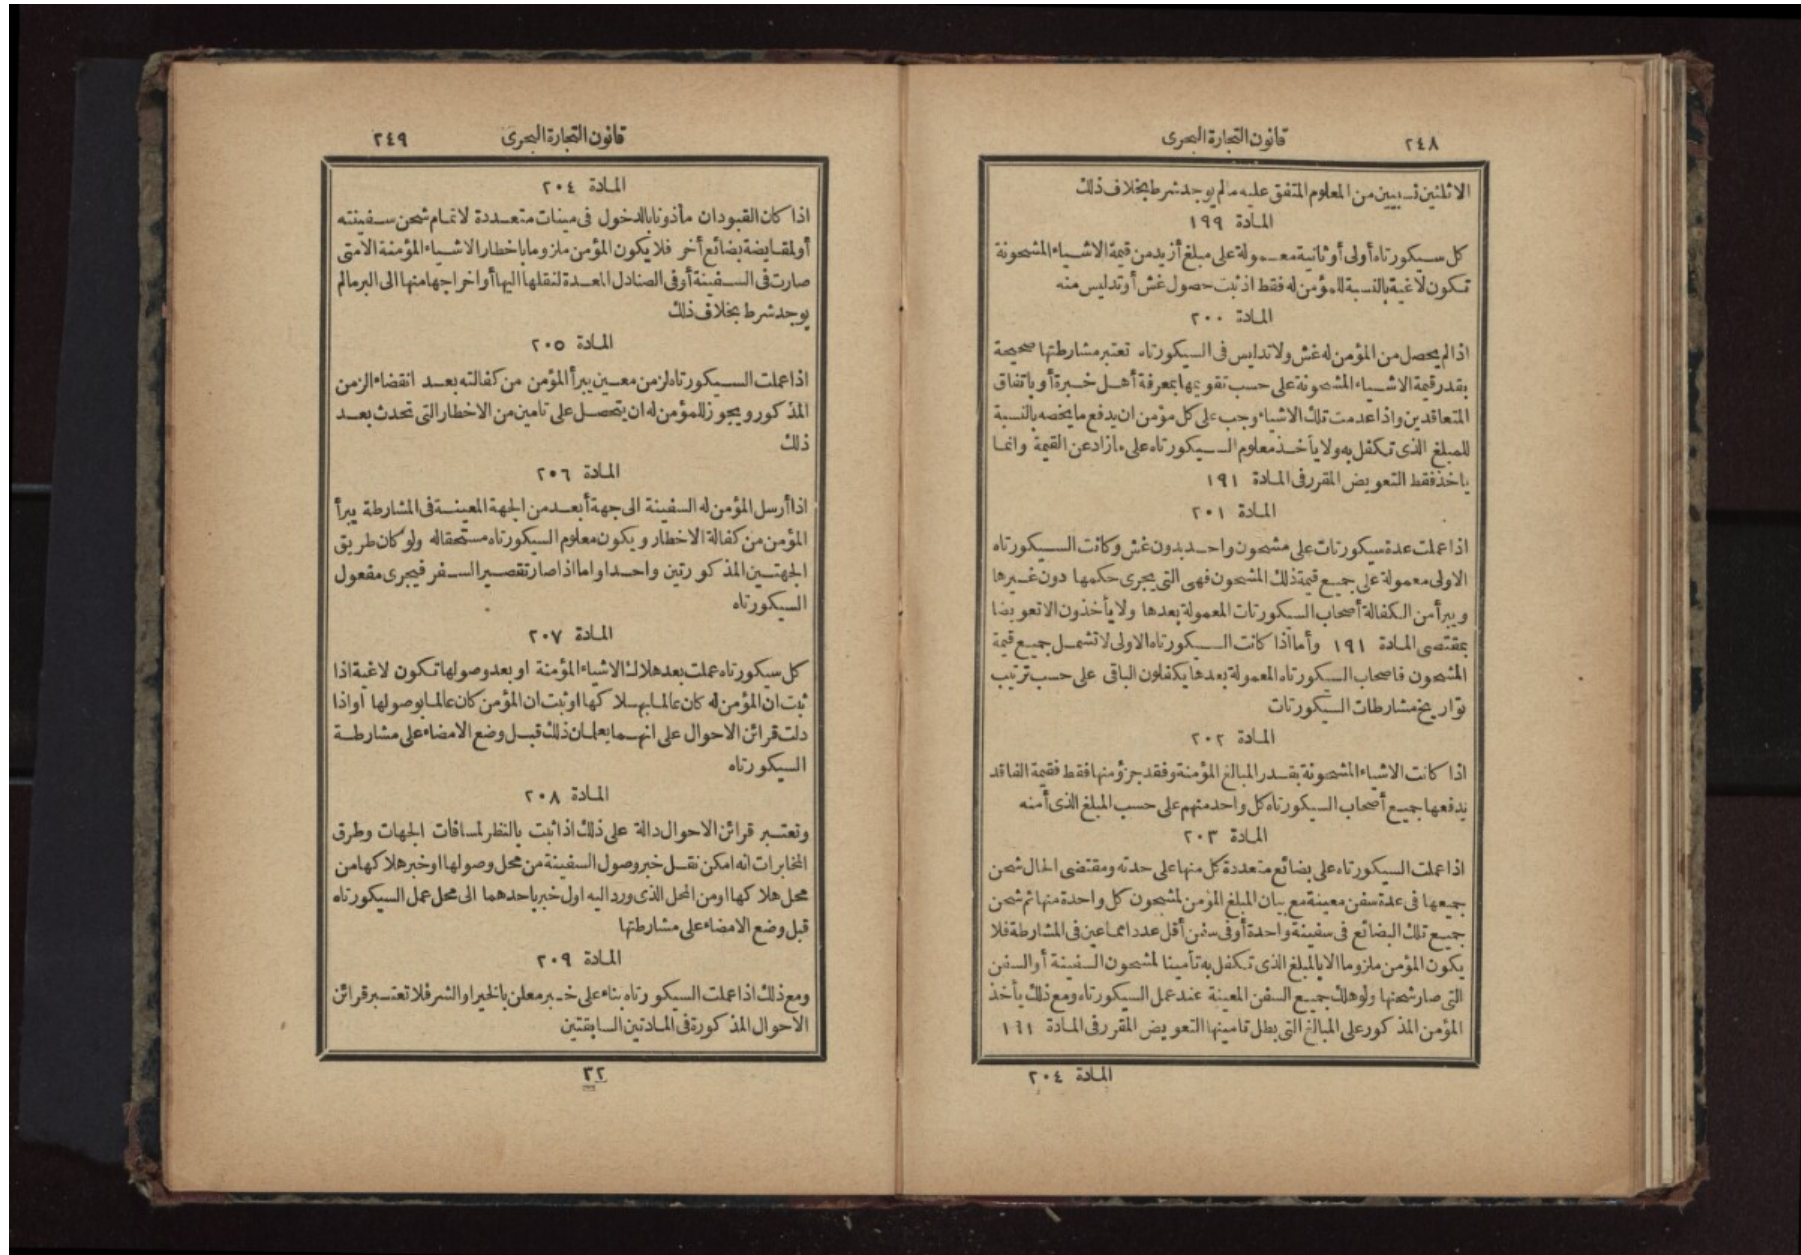 ٢٤٨
قانون التجارة البحرى
الا ثلثين نسبيين من المعلوم المتفق عليه مالم يوجد شرط بخلاف ذلك
المادة ١٩٩
كل سيكورتاه أولى أو ثانية معمولة على مبلغ أزيد من قيمة الاشياء المشحونة
تكون لاغية بالنسبة للمؤمن له فقط اذ ثبت حصول غش أو تدليس منه
المادة ٢٠٠
اذا لم يحصل من المؤمن له غش ولا تدليس فى السيكورتاه تعتبر مشارطتها صحيحة
بقدر قيمة الاشياء المشحونة على حسب تقويمها بمعرفة أهل خبرة أو باتفاق
المتعاقدين واذا عدمت تلك الاشياء وجب على كل مؤمن ان يدفع ما يخصه بالنسبة
للمبلغ الذى تكفل به ولا يأخذ معلوم السيكورتاه على ما زاد عن القيمة وانما
ياخذ فقط التعويض المقرر فى المادة ١٩١
المادة ٢٠١
اذا عملت عدة سيكورتات على مشحون واحد بدون غش وكانت السيكورتاه
الاولى معمولة على جميع قيمة ذلك المشحون فهى التى يجرى حكمها دون غيرها
ويبرأ من الكفالة أصحاب السيكورتات المعمولة بعدها ولا يأخذون الا تعويضا
بمقتضى المادة ١٩١ وأما اذا كانت السيكورتاه الاولى لا تشمل جميع قيمة
المشحون فاصحاب السيكورتاه المعمولة بعدها يكفلون الباقى على حسب ترتيب
تواريخ مشارطات السيكورتات
المادة ٢٠٢
اذا كانت الاشياء المشحونة بقدر المبالغ المؤمنة وفقد جزؤ منها فقط فقيمة الفاقد
يدفعها جميع أصحاب السيكورتاه كل واحد منهم على حسب المبلغ الذى أمنه
المادة ٢٠٣
اذا عملت السيكورتاه على بضائع متعددة كل منها على حدته ومقتضى الحال شحن
جميعها فى عدة سفن معينة مع بيان المبلغ المؤمن لمشحون كل واحدة منها ثم شحن
جميع تلك البضائع فى سفينة واحدة أو فى سفن أقل عددا مما عين فى المشارطة فلا
يكون المؤمن ملزوما الا بالمبلغ الذى تكفل به تأمينا لمشحون السفينة أو السفن
التى صار شحنها ولو هلك جميع السفن المعينة عند عمل السيكورتاه ومع ذلك يأخذ
المؤمن المذكور على المبالغ التى بطل تامينها التعويض المقرر فى المادة ١٩١
المادة ٢٠٤
قانون التجارة البحرى
٢٤٩
المادة ٢٠٤
اذا كان القبودان مأذونا بالدخول فى مينات متعددة لاتمام شحن سفينته
أو لمقايضة بضائع أخر فلا يكون المؤمن ملزوما باخطار الاشياء المؤمنة الا متى
صارت فى السفينة أو فى الصنادل المعدة لنقلها اليها أو اخراجها منها الى البر مالم
يوجد شرط بخلاف ذلك
المادة ٢٠٥
اذا عملت السيكورتاه لزمن معين يبرأ المؤمن من كفالته بعد انقضاء الزمن
المذكور ويجوز للمؤمن له ان يتحصل على تامين من الاخطار التى تحدث بعد
ذلك
المادة ٢٠٦
اذا أرسل المؤمن له السفينة الى جهة أبعد من الجهة المعينة فى المشارطة يبرأ
المؤمن من كفالة الاخطار ويكون معلوم السيكورتاه مستحقا له ولو كان طريق
الجهتين المذكورتين واحدا واما اذا صار تقصير السفر فيجرى مفعول
السيكورتاه
المادة ٢٠٧
كل سيكورتاه عملت بعد هلاك الاشياء المؤمنة او بعد وصولها تكون لاغية اذا
ثبت ان المؤمن له كان عالما بهلاكها او ثبت ان المؤمن كان عالما بوصولها أو اذا
دلت قرائن الاحوال على انهما يعلمان ذلك قبل وضع الامضاء على مشارطة
السيكورتاه
المادة ٢٠٨
وتعتبر قرائن الاحوال دالة على ذلك اذا ثبت بالنظر لمسافات الجهات وطرق
المخابرات انه امكن نقل خبر وصول السفينة من محل وصولها او خبر هلاكها من
محل هلاكها او من المحل الذى ورد اليه اول خبر باحدهما الى محل عمل السيكورتاه
قبل وضع الامضاء على مشارطتها
المادة ٢٠٩
ومع ذلك اذا عملت السيكورتاه بناء على خبر معلن بالخير او الشر فلا تعتبر قرائن
الاحوال المذكورة فى المادتين السابقتين
٣٢